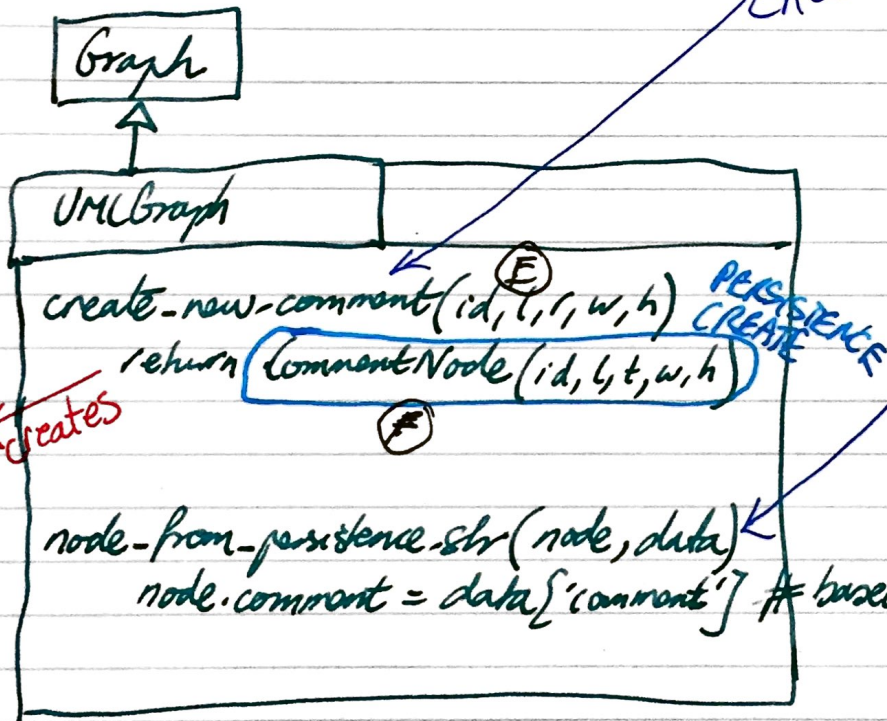 Graph
UMLGraph
E
create_new_comment(id, l, r, w, h)
PERSISTENCE
CREATE
return CommentNode(id, l, t, w, h)
creates
F
node_from_persistence_str(node, data)
node.comment = data['comment'] # based